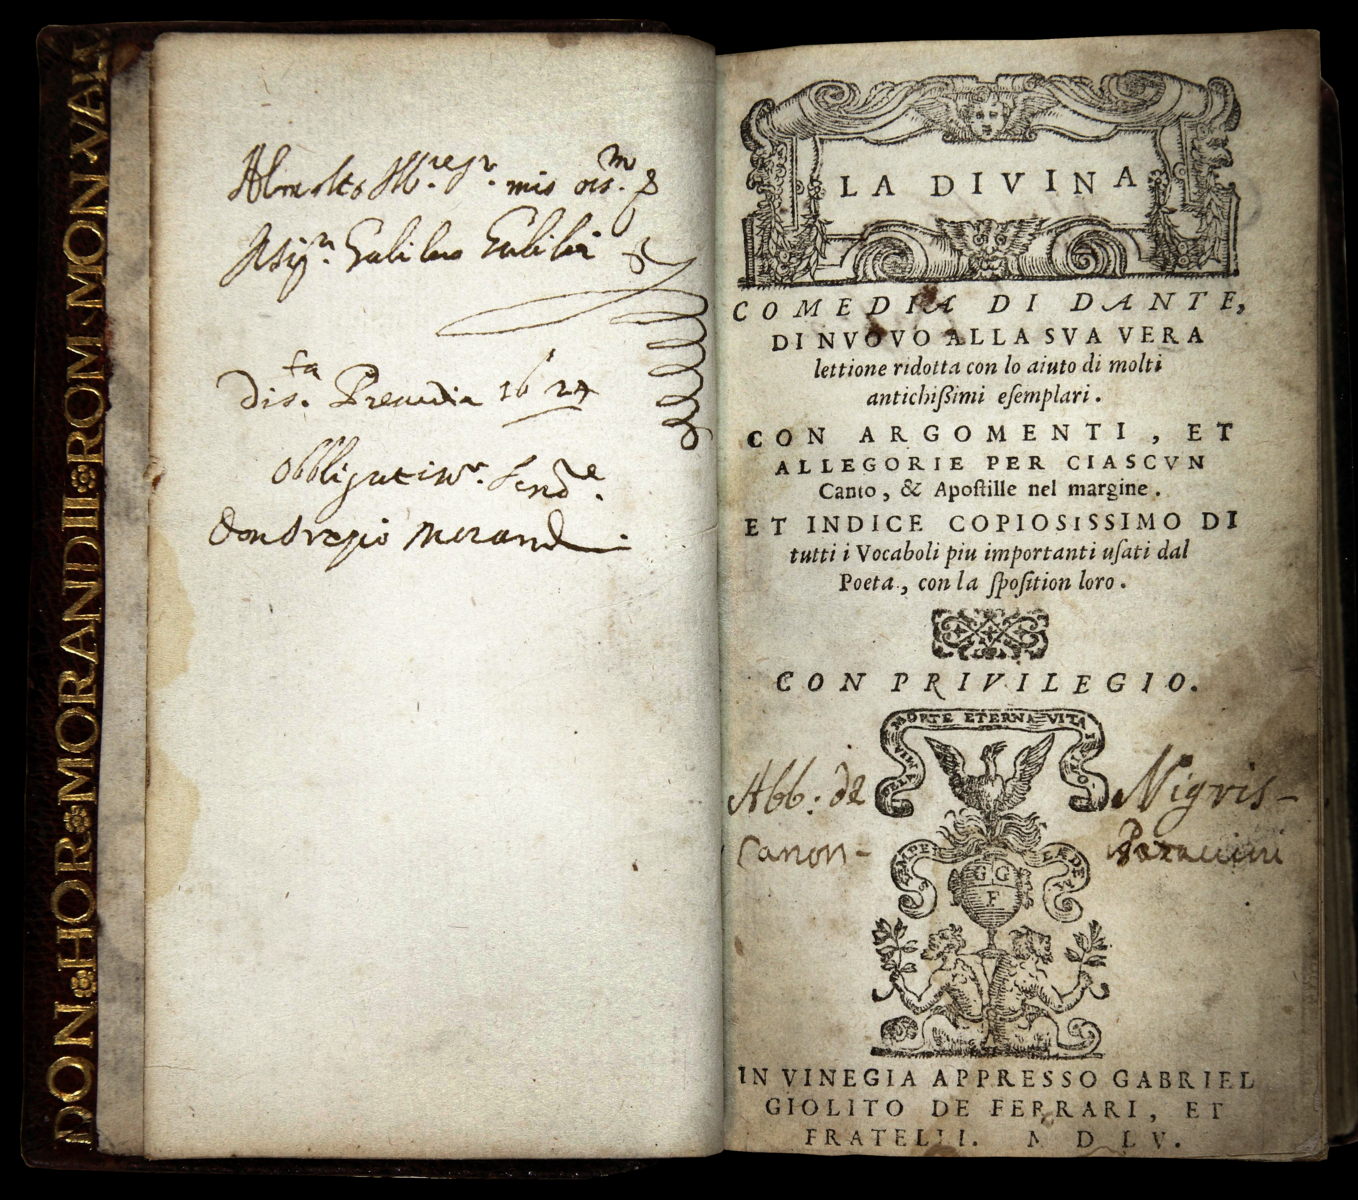 DON HOR MORANDII ROM MON VAL
Al molto M.re Sr. mio oss.mo
Il Sigr. Galileo Galilei
Di S.ta Prenedia 1624
Obbligatiss.
Don Oratio Morandi
LA DIVINA
COMEDIA DI DANTE,
DI NVOVO ALLA SVA VERA
lettione ridotta con lo aiuto di molti
antichißimi eſemplari.
CON ARGOMENTI, ET
ALLEGORIE PER CIASCVN
Canto, & Apoſtille nel margine.
ET INDICE COPIOSISSIMO DI
tutti i Vocaboli piu importanti uſati dal
Poeta, con la ſpoſition loro.
CON PRIVILEGIO.
DE LA MIA MORTE ETERNA VITA I VIVO
Abb. de Nigris-
Canon-
SEMPER EADEM
G G
F
IN VINEGIA APPRESSO GABRIEL
GIOLITO DE FERRARI, ET
FRATELLI. M D L V.